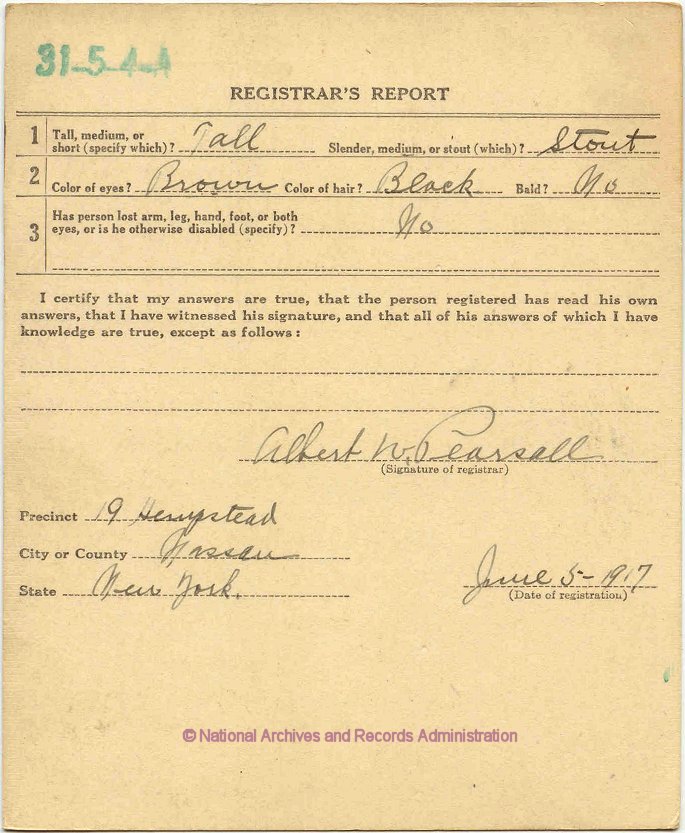 31-5-4-A
REGISTRAR'S REPORT
1 Tall, medium, or short (specify which)? Tall Slender, medium, or stout (which)? Stout
2 Color of eyes? Brown Color of hair? Black Bald? No
3 Has person lost arm, leg, hand, foot, or both
eyes, or is he otherwise disabled (specify)? No
I certify that my answers are true, that the person registered has read his own
answers, that I have witnessed his signature, and that all of his answers of which I have
knowledge are true, except as follows:
Albert W. Pearsall
(Signature of registrar)
Precinct 19 Hempstead
City or County Nassau
State New York.
June 5-1917
(Date of registration)
© National Archives and Records Administration